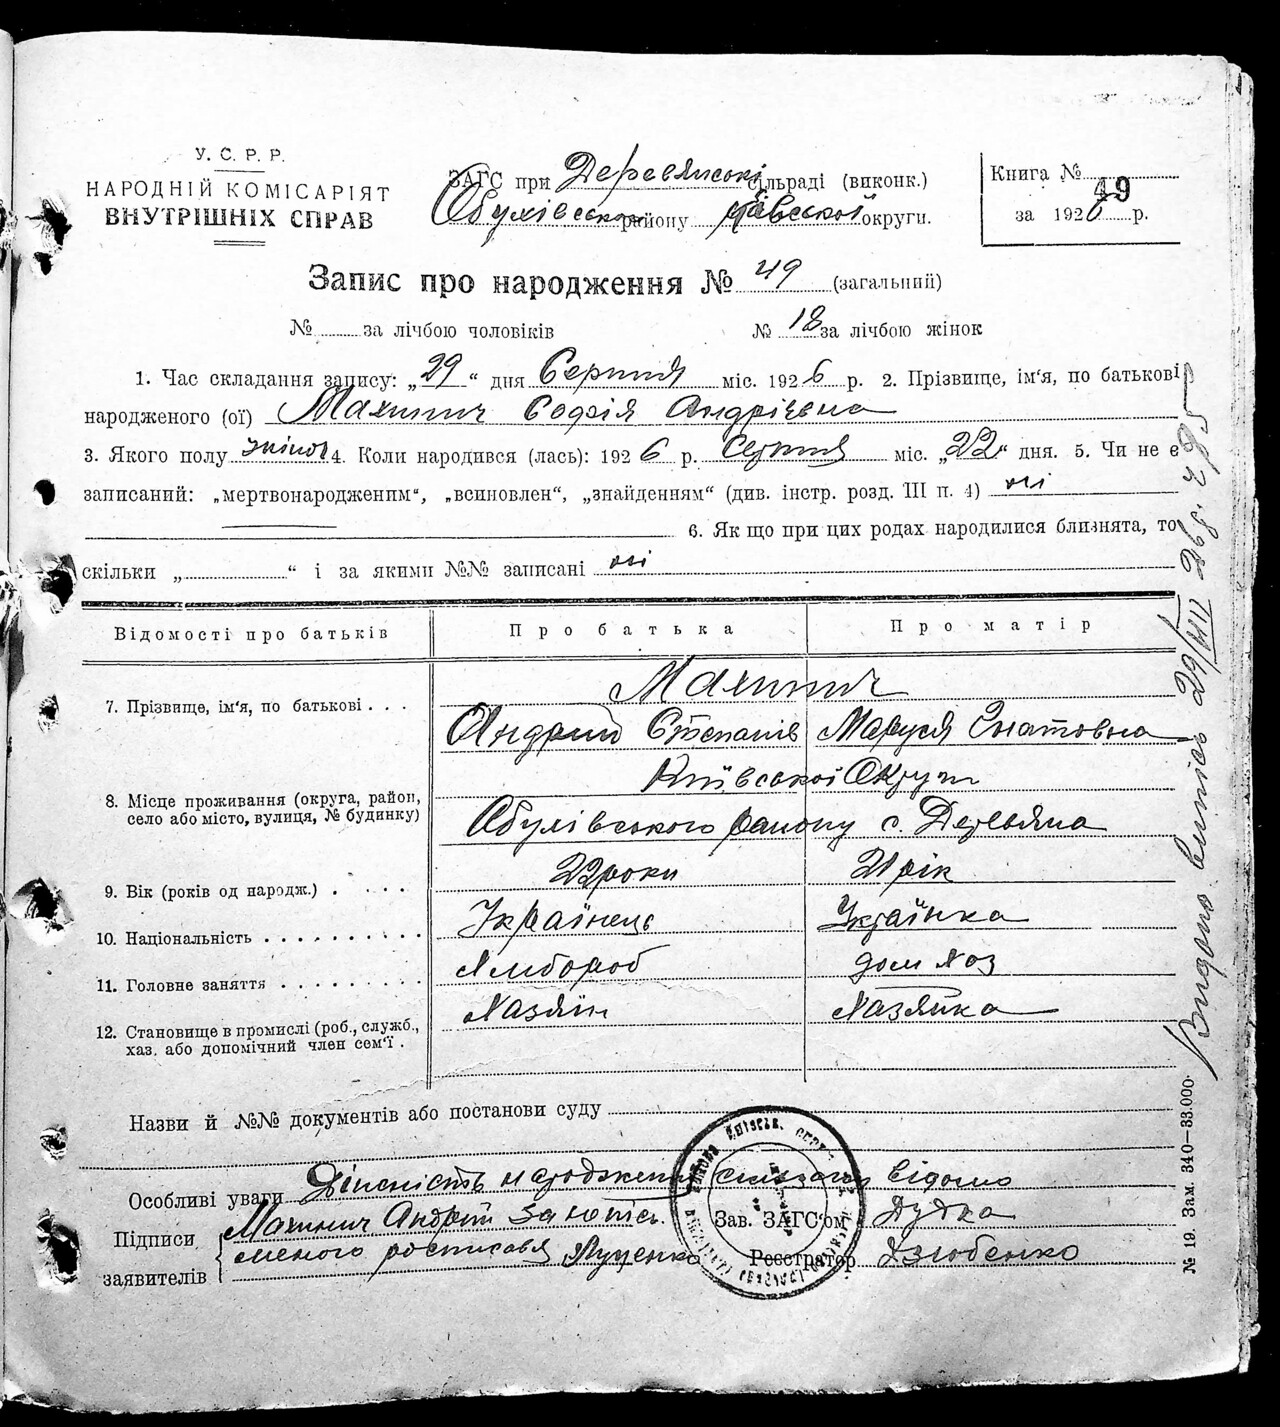 У. С. Р. Р.
НАРОДНІЙ КОМІСАРІЯТ
ВНУТРІШНІХ СПРАВ
ЗАГС при Деревянській сільраді (виконк.)
Обухівського району Київської округи.
Книга № 49
за 1926 р.
Запис про народження № 49 (загальний)
№ за лічбою чоловіків № 18 за лічбою жінок
1. Час складання запису: „29“ дня Серпня міс. 1926 р. 2. Прізвище, ім'я, по батькові
народженого (ої) Махинич Софія Андріївна
3. Якого полу жіноч 4. Коли народився (лась): 1926 р. Серпня міс. „22“ дня. 5. Чи не є
записаний: „мертвонародженим“, „всиновлен“, „знайденням“ (див. інстр. розд. III п. 4) ні
6. Як що при цих родах народилися близнята, то
скільки „ “ і за якими №№ записані ні
Відомості про батьків Про батька Про матір
Махинич
7. Прізвище, ім'я, по батькові . . . Андрій Степанів Маруся Гнатовна
Київської Округи
8. Місце проживання (округа, район,
село або місто, вулиця, № будинку) Обухівського району с. Деревяна
9. Вік (років од народж.) . . . . 22 роки 21 рік
10. Національність . . . . . . . . . . Українець Українка
11. Головне заняття . . . . . . . . . Хлібороб дом хоз
12. Становище в промислі (роб., служб., Хазяїн Хазяйка
хаз. або допомічний член сем'ї .
Назви й №№ документів або постанови суду
Особливі уваги Дійсність народження відомо
Підписи Махинич Андрій Зав. ЗАГС'ом Дудка
заявителів росписався Луценко Реєстратор Дзюбенко
Видано витпісь 29/VIII 26 р.
№ 19. Зам. 340—33.000.